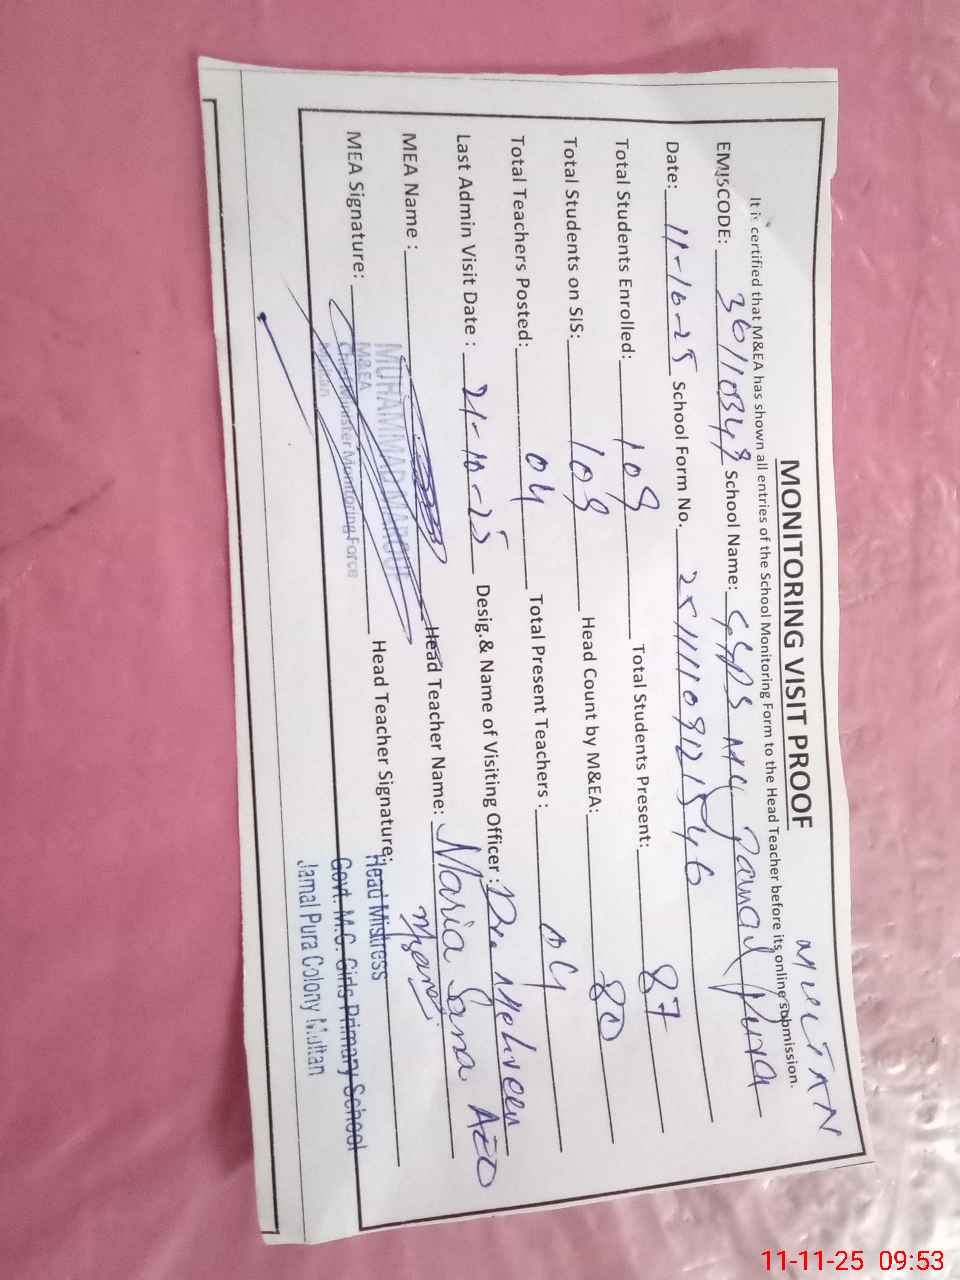 MULTAN
MONITORING VISIT PROOF
It is certified that M&EA has shown all entries of the School Monitoring Form to the Head Teacher before its online submission.
EMISCODE: 36110349 School Name: GGPS MC Jamal Pura
Date: 11-10-25 School Form No. 25111109121546
Total Students Enrolled: 109 Total Students Present: 87
Total Students on SIS: 109 Head Count by M&EA: 80
Total Teachers Posted: 04 Total Present Teachers : 04
Last Admin Visit Date : 21-10-25 Desig.& Name of Visiting Officer : Mehreen AEO
MEA Name : Head Teacher Name: Maria Sana
MUHAMMAD MAROOF
M&EA
Chief Minister Monitoring Force
Multan
MEA Signature: Head Teacher Signature:
Head Mistress
Govt. M.C. Girls Primary School
Jamal Pura Colony Multan
11-11-25 09:53